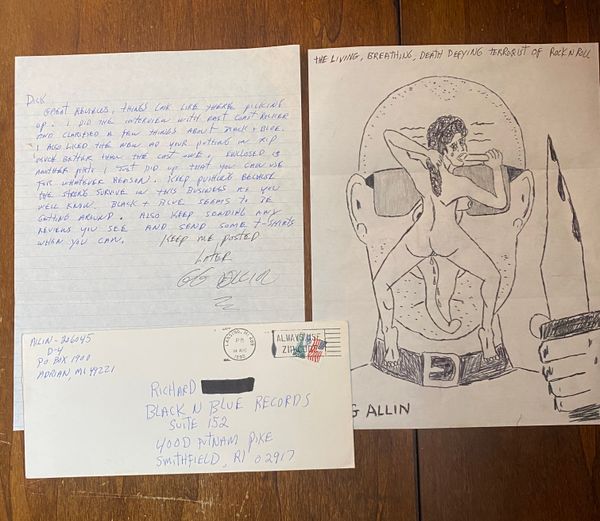 DICK
GREAT REVIEWS, THINGS LOOK LIKE THERE PICKING
UP. I DID THE INTERVIEW WITH EAST COAST ROCKER
AND CLARIFIED A FEW THINGS ABOUT BLACK + BLUE.
I ALSO LIKED THE NEW AD YOUR PUTTING IN RIP
MUCH BETTER THAN THE LAST ONE. ENCLOSED IS
ANOTHER PHOTO I JUST DID UP THAT YOU CAN USE
FOR WHATEVER REASON. KEEP PUSHING BECAUSE
THE STRONG SURVIVE IN THIS BUSINESS AS YOU
WELL KNOW. BLACK + BLUE SEEMS TO BE
GETTING AROUND. ALSO KEEP SENDING ANY
REVIEWS YOU SEE AND SEND SOME T-SHIRTS
WHEN YOU CAN. KEEP ME POSTED
LATER
GG ALLIN
THE LIVING, BREATHING, DEATH DEFYING TERRORIST OF ROCK N ROLL
G ALLIN
ALLIN-206045
D-4
P.O. BOX 1900
ADRIAN, MI 49221
PM
ALWAYS USE
ZIP CODE
RICHARD
BLACK N BLUE RECORDS
SUITE 152
400D PUTNAM PIKE
SMITHFIELD, RI 02917